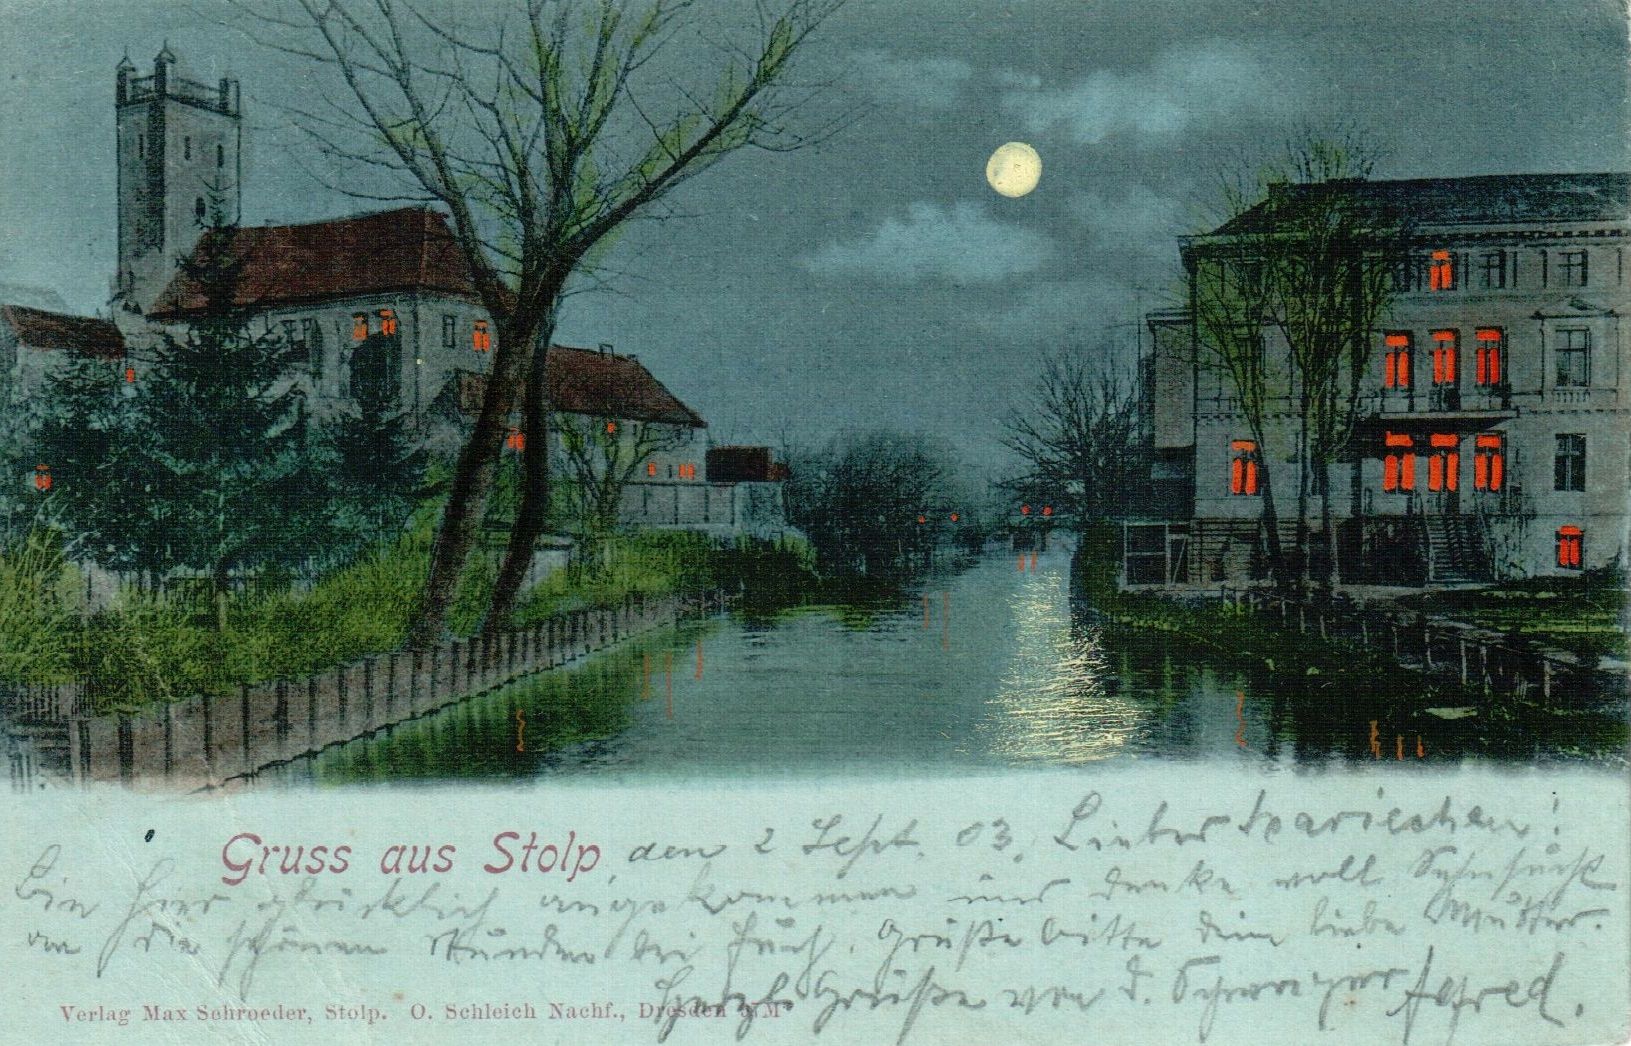 Gruss aus Stolp, den 2 Sept. 03. Liebes Mariechen!
Bin hier glücklich angekommen und denke voll Sehnsucht
an die schönen Stunden bei Euch. Grüße bitte deine liebe Mutter.
Herzl. Grüße von d. Alfred.
Verlag Max Schroeder, Stolp. O. Schleich Nachf., Dresden